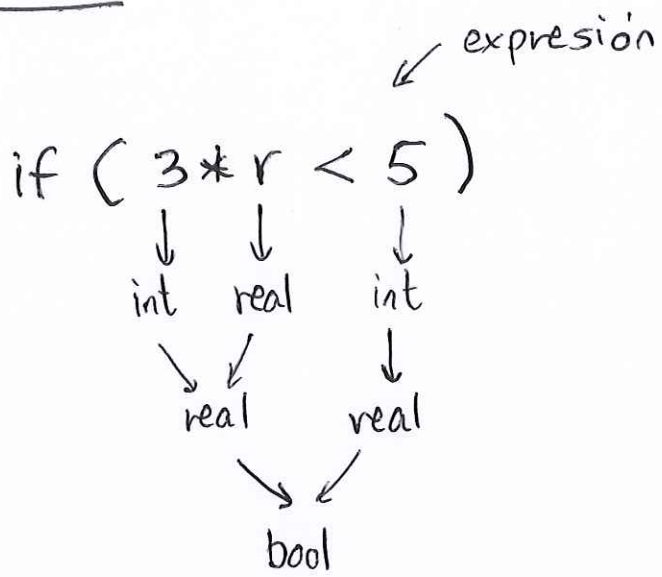 expresión
if ( 3 * r < 5 )
int real int
real real
bool